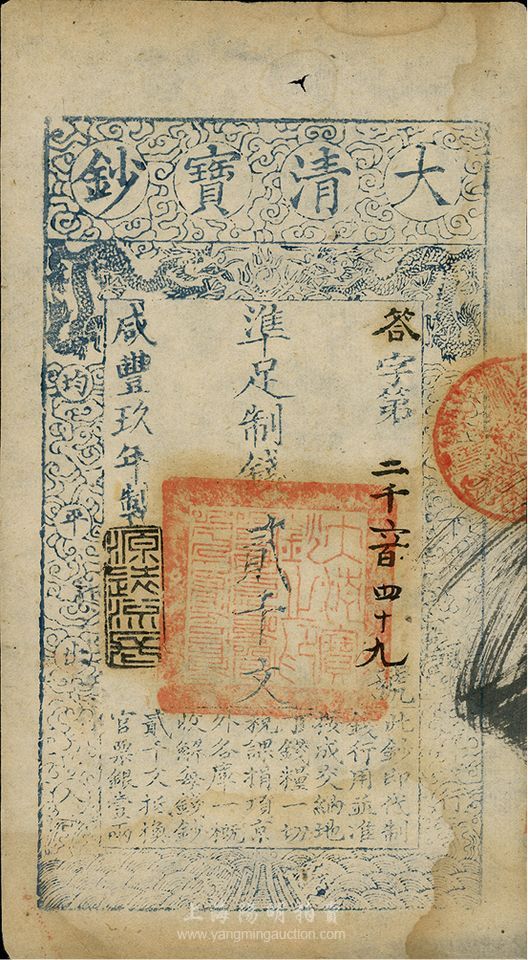 大清寶鈔
答字第二千六百四十九號
準足制錢貳千文
咸豐玖年製
均平
此鈔即代制
錢行用並準
按成交納地
丁錢糧一切
稅課捐項京
外各庫一概
收解每錢鈔
貳千文抵換
官票銀壹兩
源遠流長
上海陽明拍賣
www.yangmingauction.com